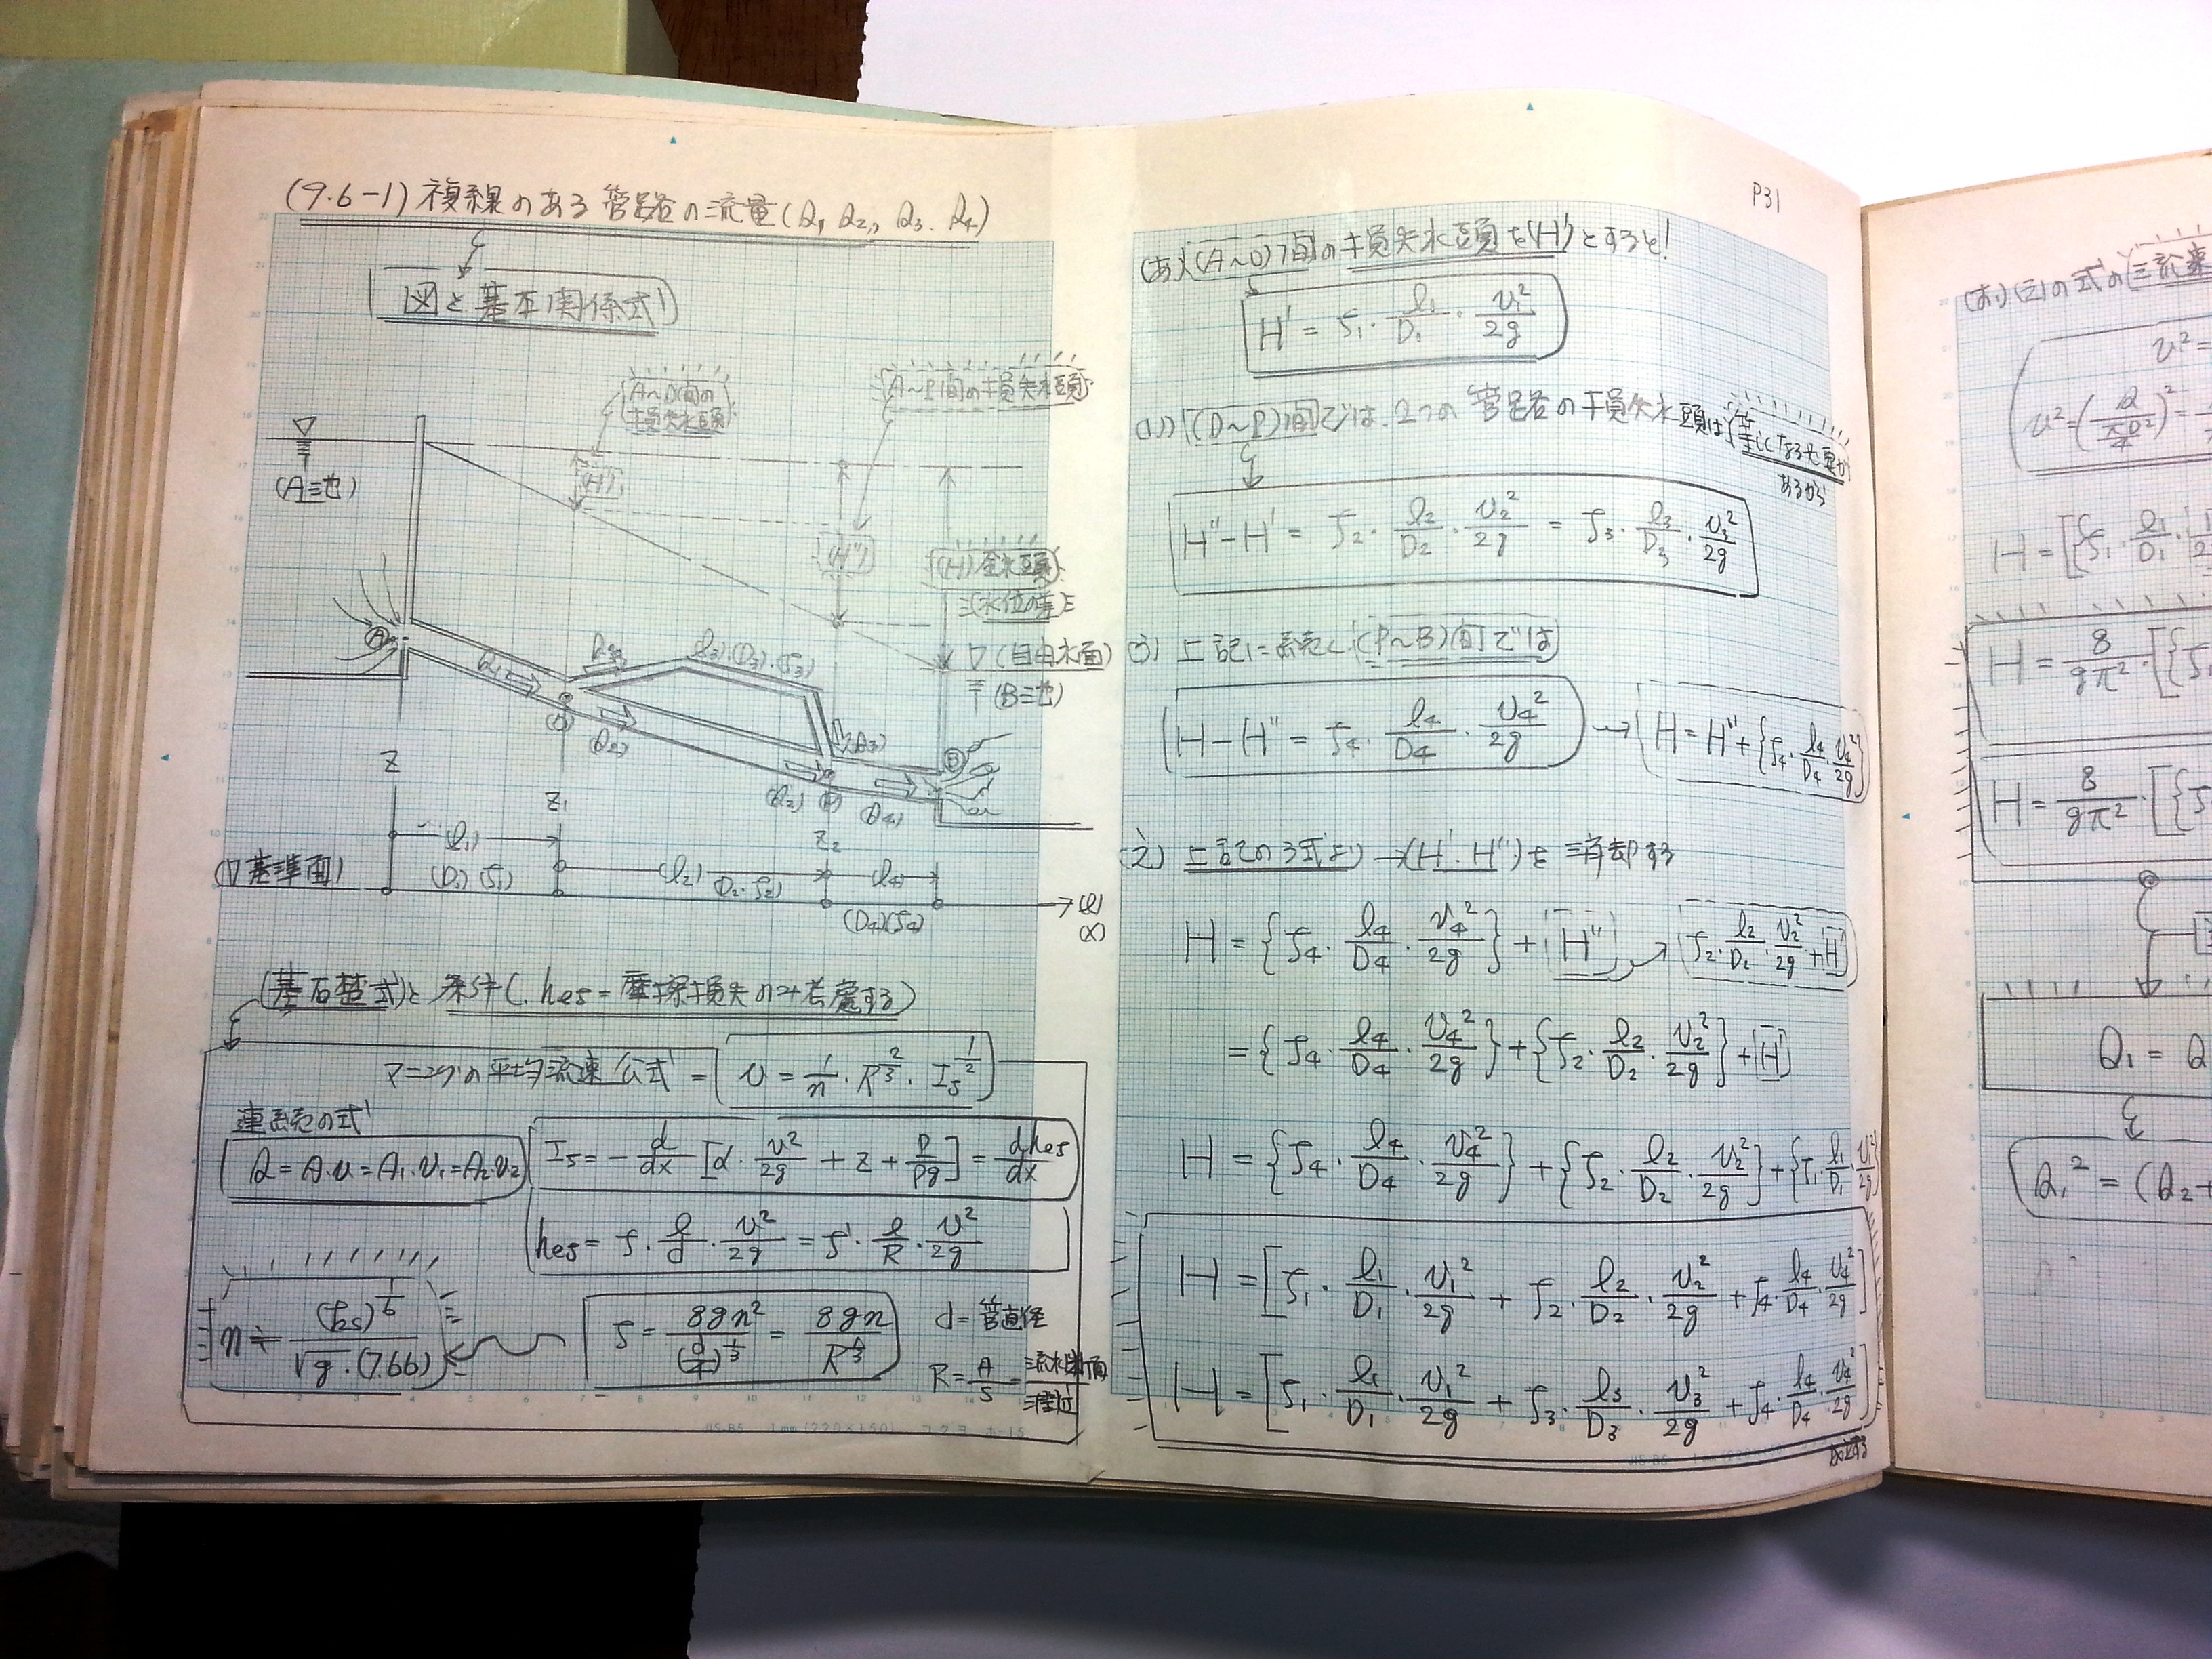 (9.6-1) 複線のある管路の流量(Q1, Q2, Q3, Q4)
図と基本関係式
A~D間の
損失水頭
A~P間の損失水頭
(A池)
(H')
(H'')
(H)全水頭
(水位の差)
(自由水面)
(B池)
A
Q1
l3)・(D3)・(f3)
(D)
(Q2)
(Q3)
(Q2)
(P)
(Q4)
B
Z
Z1
Z2
(l1)
(l2)
(l4)
(▽基準面)
(D1)(f1)
(D2・f2)
(D4)(f4)
(l)
(x)
(基礎式)と条件(hes=摩擦損失のみ考慮する)
マニングの平均流速公式 = v = 1/n・R^(2/3)・I5^(1/2)
連続の式
Q = A・v = A1・v1 = A2・v2
I5 = -d/dx [α・v²/2g + z + P/ρg] = dhes/dx
hes = f・l/d・v²/2g = f'・l/R・v²/2g
n ≒ (ks)^(1/6) / √g・(7.66)
f = 8gn²/(d/4)^(1/3) = 8gn/R^(1/3)
d = 管直径
R = A/S = 流水断面/潤辺
P31
(あ) (A~D)間の損失水頭を(H')とすると!
H' = f1・l1/D1・v1²/2g
(い) (D~P)間では、2つの管路の損失水頭は等しくなる必要が
あるから
H''-H' = f2・l2/D2・v2²/2g = f3・l3/D3・v3²/2g
(う) 上記に続く(P~B)間では
H-H'' = f4・l4/D4・v4²/2g → H = H''+{f4・l4/D4・v4²/2g}
(え) 上記の3式より→(H'・H'')を消却する
H = {f4・l4/D4・v4²/2g} + H'' → f2・l2/D2・v2²/2g + H'
= {f4・l4/D4・v4²/2g} + {f2・l2/D2・v2²/2g} + H'
H = {f4・l4/D4・v4²/2g} + {f2・l2/D2・v2²/2g} + {f1・l1/D1・v1²/2g}
H = [f1・l1/D1・v1²/2g + f2・l2/D2・v2²/2g + f4・l4/D4・v4²/2g]
H = [f1・l1/D1・v1²/2g + f3・l3/D3・v3²/2g + f4・l4/D4・v4²/2g]
(お) (え)の式の
v² =
v² = (Q/(πD²/4))² =
H = [f1・l1/D1・
H = 8/gπ²・[{f
H = 8/gπ²・[{f
Q1 = Q
Q1² = (Q2+